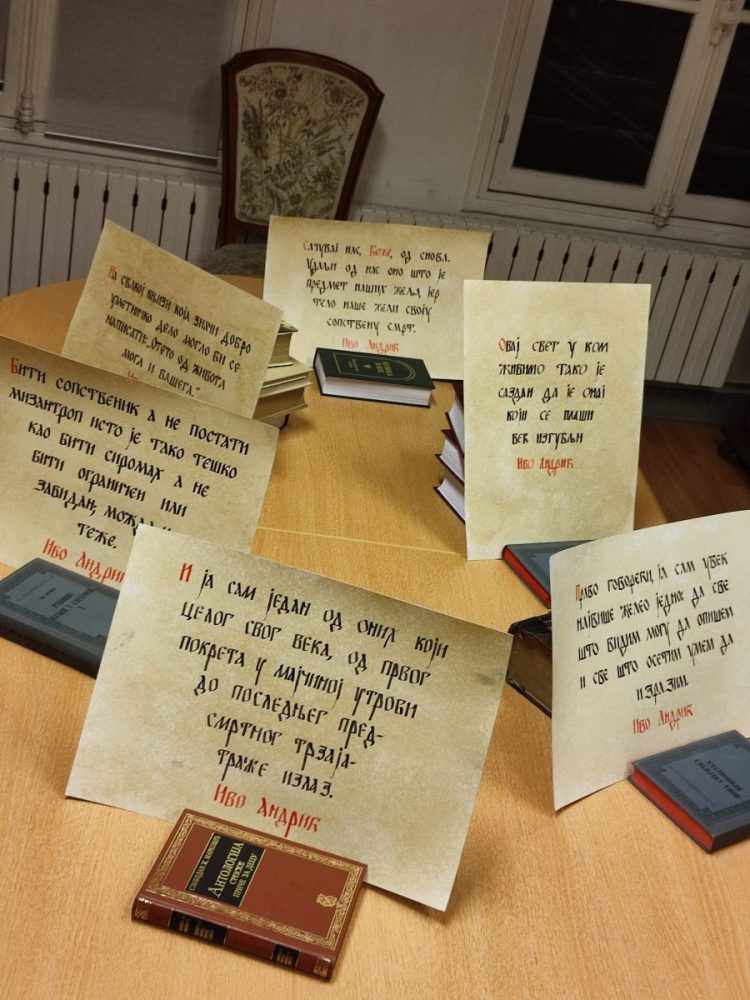 Сачувај нас, Боже, од снова.
Удаљи од нас оно што је
предмет наших жеља јер
тело наше жели своју
сопствену смрт.
Иво Андрић
На свакој књизи која значи добро
уметничко дело могло би се
написати: „Отето од живота
мога и вашега.“
Овај свет у ком
живимо тако је
саздан да је онај
који се плаши
век изгубљи
Иво Андрић
Бити сопственик а не постати
мизантроп исто је тако тешко
као бити сиромах а не
бити ограничен или
завидан; можда и
теже.
Иво Андрић
Право говорећи, ја сам увек
највише желео једно: да све
што видим могу да опишем
и све што осетим умем да
изразим.
Иво Андрић
И ја сам један од оних који
целог свог века, од првог
покрета у мајчиној утроби
до последњег пред-
смртног трзаја-
траже излаз.
Иво Андрић
Антологија
српске
приче за децу